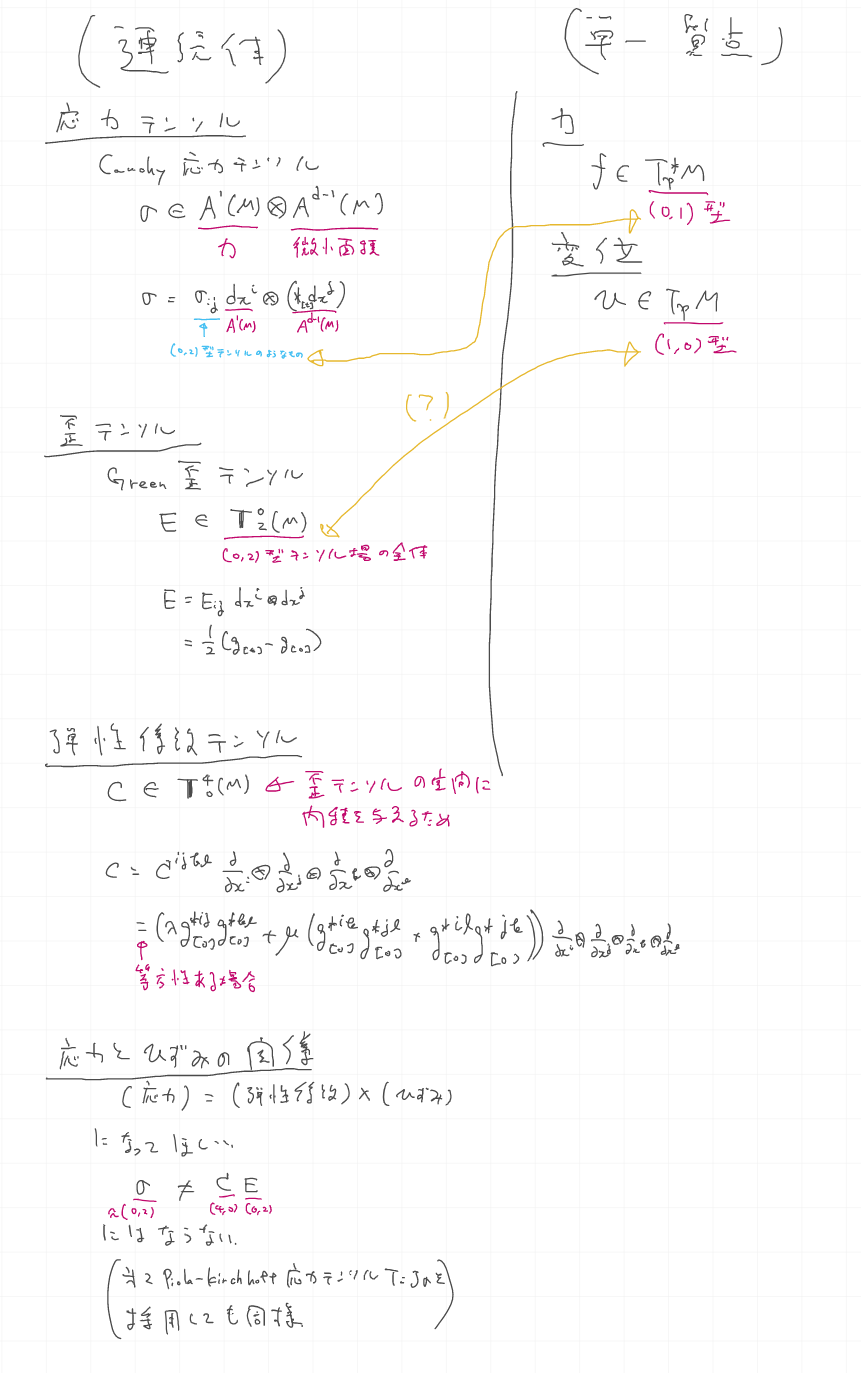 (連続体)
応力テンソル
Cauchy 応力テンソル
σ ∈ A¹(M) ⊗ A^{d-1}(M)
力 微小面積
σ = σ_{ij} dx^i ⊗ (*_{[t]} dx^j)
A¹(M) A^{d-1}(M)
(0,2)型テンソルのようなもの
歪テンソル
Green 歪テンソル
E ∈ T⁰₂(M)
(0,2)型テンソル場の全体
E = E_{ij} dx^i ⊗ dx^j
= 1/2 (g_{[t]} - g_{[0]})
(単一質点)
力
f ∈ T_p^*M
(0,1)型
変位
u ∈ T_pM
(1,0)型
(?)
弾性係数テンソル
C ∈ T⁴₀(M) ← 歪テンソルの空間に
内積を与えるため
C = C^{ijkl} ∂/∂x^i ⊗ ∂/∂x^j ⊗ ∂/∂x^k ⊗ ∂/∂x^l
= (λ g^{*ij}_{[0]} g^{*kl}_{[0]} + μ (g^{*ik}_{[0]} g^{*jl}_{[0]} + g^{*il}_{[0]} g^{*jk}_{[0]})) ∂/∂x^i ⊗ ∂/∂x^j ⊗ ∂/∂x^k ⊗ ∂/∂x^l
等方性ある場合
応力とひずみの関係
(応力) = (弾性係数) × (ひずみ)
になってほしい…
σ ≠ C E
~(0,2) (4,0) (0,2)
にはならない.
(第2 Piola-Kirchhoff 応力テンソル T = Jσを
採用しても同様)